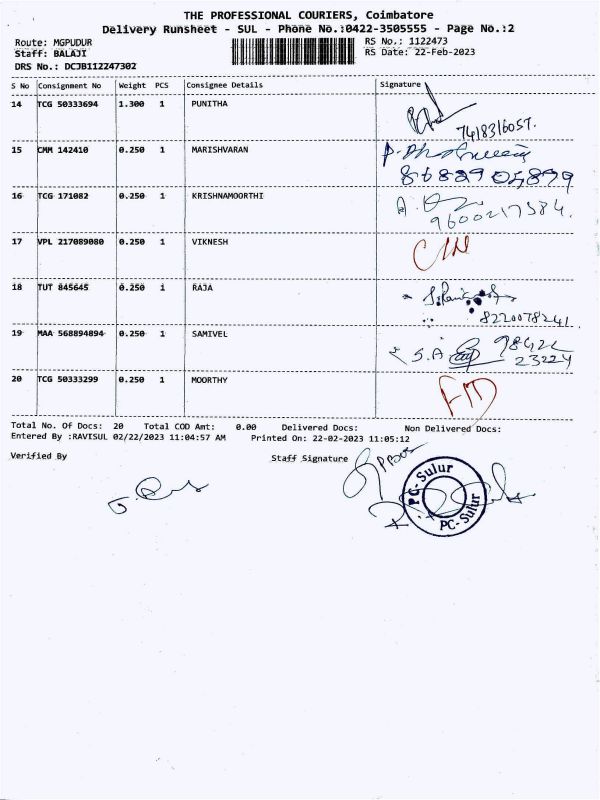 THE PROFESSIONAL COURIERS, Coimbatore
Delivery Runsheet - SUL - Phone No.:0422-3505555 - Page No.:2
Route: MGPUDUR
Staff: BALAJI
DRS No.: DCJB112247302
RS No.: 1122473
RS Date: 22-Feb-2023
S No Consignment No Weight PCS Consignee Details Signature
14 TCG 50333694 1.300 1 PUNITHA
7418316057.
15 CMM 142410 0.250 1 MARISHVARAN
16 TCG 171082 0.250 1 KRISHNAMOORTHI
9600217384.
17 VPL 217089080 0.250 1 VIKNESH
18 TUT 845645 0.250 1 RAJA
8220078241
19 MAA 568894894 0.250 1 SAMIVEL
S.A 98422
23224
20 TCG 50333299 0.250 1 MOORTHY
Total No. Of Docs: 20 Total COD Amt: 0.00 Delivered Docs: Non Delivered Docs:
Entered By :RAVISUL 02/22/2023 11:04:57 AM Printed On: 22-02-2023 11:05:12
Verified By Staff Signature
PC-Sulur
PC-Sulur